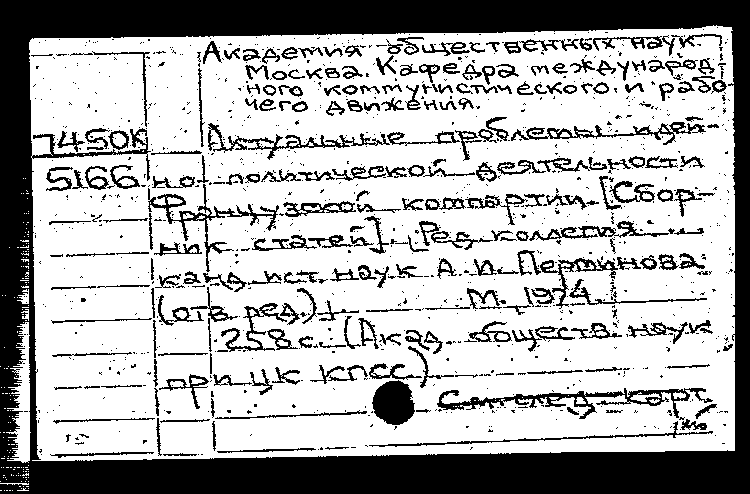 Академия общественных наук.
Москва. Кафедра международ-
ного коммунистического и рабо-
чего движения.
7450К Актуальные проблемы идей-
5166 но-политической деятельности
Французской компартии. [Сбор-
ник статей]. [Ред. коллегия: ...
канд. ист. наук А. И. Пертинова
(отв. ред.)]. М., 1974.
258 с. (Акад. обществ. наук
при ЦК КПСС)
См. след. карт.